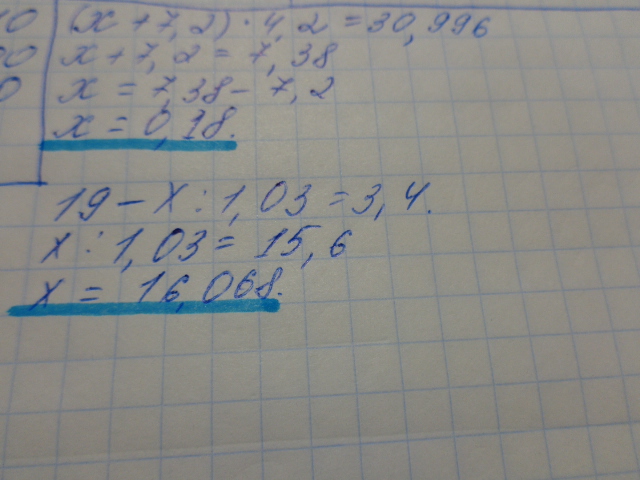 (x + 7,2) · 4,2 = 30,996
x + 7,2 = 7,38
x = 7,38 - 7,2
x = 0,18.
19 - x : 1,03 = 3,4.
x : 1,03 = 15,6
x = 16,068.